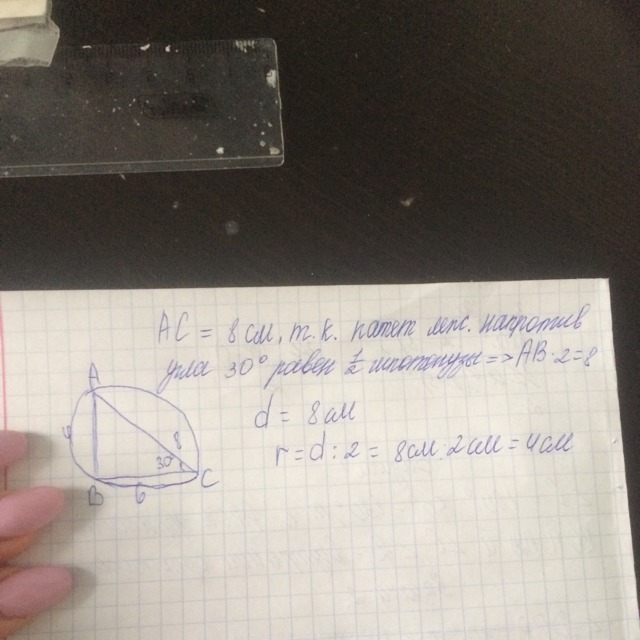 AC = 8 см, т.к. катет леж. напротив
угла 30° равен ½ гипотенузы => AB·2=8
d = 8см
r = d : 2 = 8см : 2см = 4см
A
4
8
30°
B
6
C